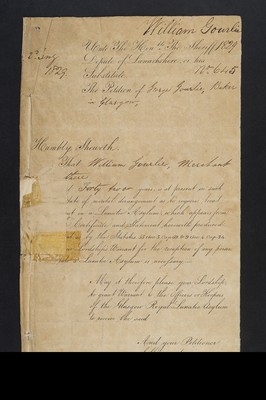 William Gourlie
1829
Unto The Honble The Sheriff
Depute of Lanarkshire or his
Substitute
The Petition of Gourlie, Baker
in Glasgow,
Humbly Sheweth
That William Gourlie, Merchant
there
Forty two years is at present in such
state of mental derangement as to require treat
in a Lunatic Asylum, which appears from
Certificate and Statement herewith produced
by the Statutes
Lordships Warrant for the reception of any person
Lunatic Asylum is necessary
May it therefore please your Lordship
to grant Warrant to the Keepers
of the Glasgow Royal Lunatic Asylum
to receive the said
And your Petitioner